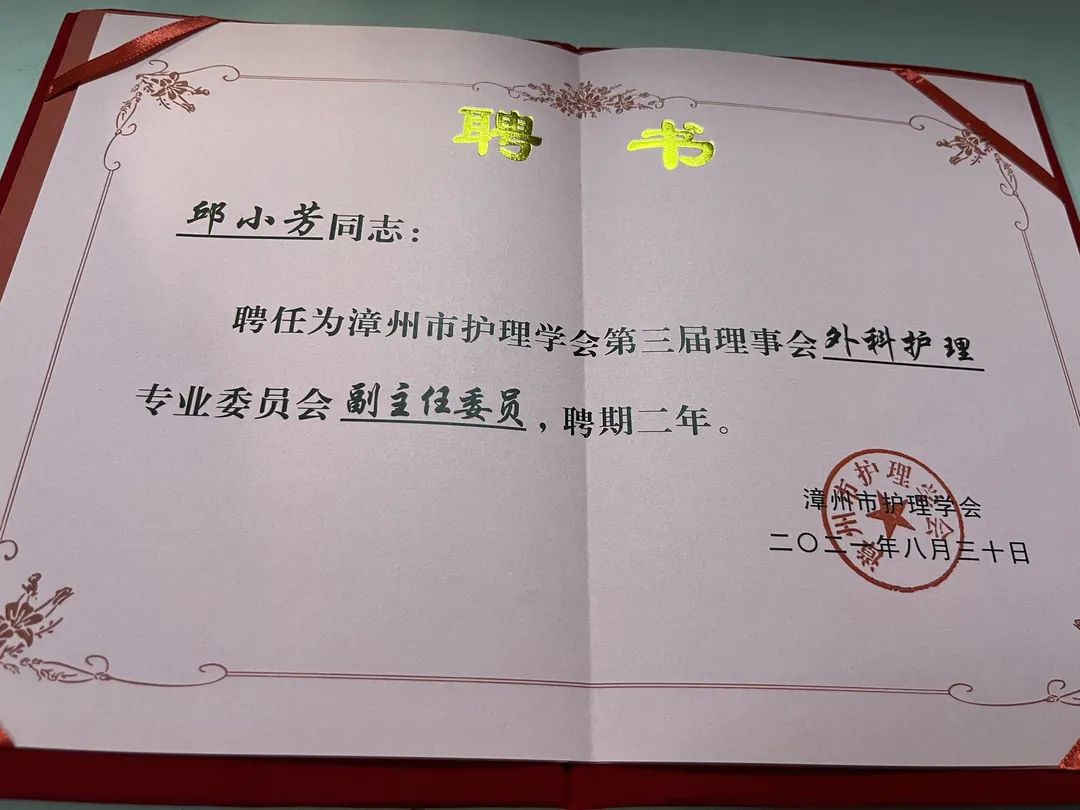 聘 书
邱小芳同志：
聘任为漳州市护理学会第三届理事会外科护理
专业委员会副主任委员，聘期二年。
漳州市护理学会
二〇二一年八月三十日
漳州市护理学会